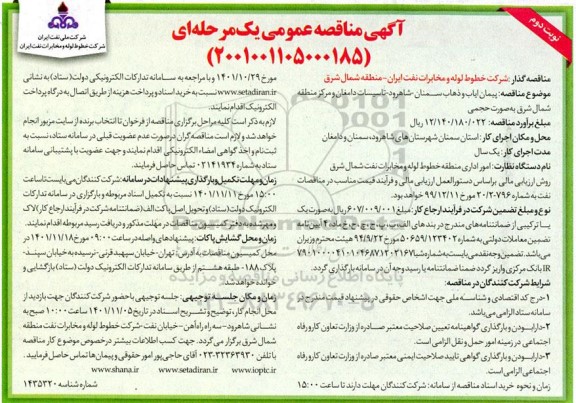 نوبت دوم
آگهی مناقصه عمومی یک مرحله‌ای
(۲۰۰۱۰۰۱۱۰۵۰۰۰۱۸۵)
شرکت ملی نفت ایران
شرکت خطوط لوله و مخابرات نفت ایران
مناقصه گذار: شرکت خطوط لوله و مخابرات نفت ایران - منطقه شمال شرق
موضوع مناقصه: پیمان ایاب و ذهاب سمنان-شاهرود-تاسیسات دامغان و مرکز منطقه
شمال شرق به صورت حجمی
مبلغ برآورد مناقصه: ۱۲/۱۴۰/۱۸۰/۰۲۲ ریال
محل و مکان اجرای کار: استان سمنان شهرستان‌های شاهرود، سمنان و دامغان
مدت اجرای کار: یک سال
نام دستگاه نظارت: امور اداری منطقه خطوط لوله و مخابرات نفت شمال شرق
روش ارزیابی مالی براساس دستورالعمل ارزیابی مالی و فرآیند قیمت مناسب در مناقصات
نفت به شماره ۲۰/۳-۷۹۶ مورخ ۹۹/۱۲/۱۱ خواهد بود.
نوع و مبلغ تضمین شرکت در فرآیند ارجاع کار: مبلغ ۶۰۷/۰۰۹/۰۰۱ ریال به صورت یک
یا ترکیبی از ضمانتنامه‌های مندرج در بندهای الف، ب، پ، ج، چ، ح، خ ماده ۴ آیین نامه
تضمین معاملات دولتی به شماره ۱۲۳۴۰۲/ت۵۰۶۵۹ه مورخ ۹۴/۹/۲۲ هیئت محترم وزیران
می‌باشد. تضمین وجه نقدی می‌بایست به شماره شبا
IR بانک مرکزی واریز گردد ضمناً ضمانتنامه یا رسید وجه آن در سامانه بارگذاری گردد.
شرایط شرکت کنندگان در مناقصه:
۱-درج کد اقتصادی و شناسه ملی جهت اشخاص حقوقی در پیشنهاد قیمت مندرج در
سامانه ستاد الزامی می‌باشد.
۲-دارا بودن و بارگذاری گواهینامه تعیین صلاحیت معتبر صادره از وزارت تعاون کار و رفاه
اجتماعی در زمینه امور حمل و نقل الزامی است.
۳-دارا بودن و بارگذاری گواهی تایید صلاحیت ایمنی معتبر صادره از وزارت تعاون کار و رفاه
اجتماعی الزامی است.
زمان و نحوه خرید اسناد مناقصه از سامانه: شرکت کنندگان مهلت دارند تا ساعت ۱۵:۰۰
مورخ ۱۴۰۱/۱۰/۲۹ و با مراجعه به سامانه تدارکات الکترونیکی دولت (ستاد) به نشانی
www.setadiran.ir نسبت به خرید اسناد و پرداخت هزینه از طریق اتصال به درگاه پرداخت
الکترونیک اقدام نمایند.
لازم به ذکر است کلیه مراحل برگزاری مناقصه از فرخوان تا انتخاب برنده از سایت مزبور انجام
خواهد شد و لازم است مناقصه‌گران درصورت عدم عضویت قبلی در سامانه ستاد، نسبت به
ثبت‌نام و اخذ گواهی امضاء الکترونیکی اقدام نمایند و جهت عضویت با پشتیبانی سامانه
ستاد به شماره ۰۲۱۴۱۹۳۴ تماس حاصل فرمایند.
زمان و مهلت تکمیل و بارگذاری پیشنهادات در سامانه: شرکت کنندگان می‌بایست تا ساعت
۱۵:۰۰ مورخ ۱۴۰۱/۱۱/۱۲ نسبت به تکمیل اسناد مربوطه و بارگزاری در سامانه تدارکات
الکترونیک دولت (ستاد) و تحویل اصل پاکت الف (ضمانتنامه شرکت در فرآیند ارجاع کار) لاک
و مهر شده به دفتر کمیسیون مناقصات در مهلت مذکور و دریافت رسید مربوطه اقدام نمایند.
زمان و محل گشایش پاکات: پیشنهادهای واصله در ساعت ۰۹:۰۰ مورخ ۱۴۰۱/۱۱/۱۸ در
محل کمیسیون مناقصات به آدرس: تهران- خیابان سپهبد قرنی- نرسیده به خیابان سپند-
پلاک ۱۸۸- طبقه هشتم از طریق سامانه تدارکات الکترونیک دولت (ستاد) بازگشایی و
خوانده خواهد شد.
زمان و مکان جلسه توجیهی: جلسه توجیهی با حضور شرکت کنندگان جهت بازدید از
محل انجام کار، توضیح و تشریح اسناد در تاریخ ۱۴۰۱/۱۱/۰۵ ساعت ۱۰:۰۰ صبح به
نشانی شاهرود- سه راه راه‌آهن- خیابان نفت- شرکت خطوط لوله و مخابرات نفت منطقه
شمال شرق برگزار می گردد. جهت کسب اطلاعات بیشتر درخصوص موضوع کار مناقصه
با تلفن ۳۲۳۶۳۹۳۰-۰۲۳ آقای حاجی‌پور امور حقوقی و پیمان‌ها تماس حاصل فرمایید.
www.shana.ir www.setadiran.ir www.ioptc.ir
شماره شناسه ۱۴۳۵۳۲۰